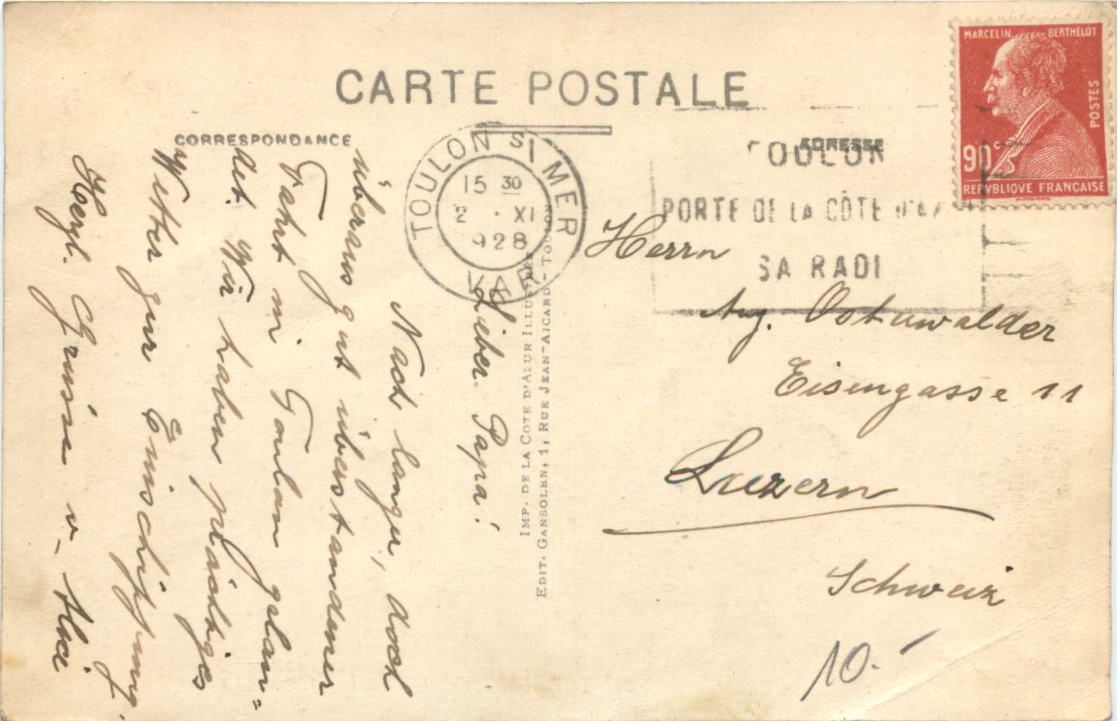 CARTE POSTALE
CORRESPONDANCE
ADRESSE
MARCELIN BERTHELOT
POSTES
90c
REPVBLIQUE FRANCAISE
TOULON S/MER
15 30
2 · XI
928
VAR
TOULON
PORTE DE LA CÔTE D'AZ
SA RADE
Lieber Papa!
Nach langer, doch
überaus gut überstandener
Fahrt in Toulon gelan=
det. Wir haben prächtiges
Wetter zur Einschiffung.
Herzl. Grüsse v. Alice
IMP. DE LA COTE D'AZUR ILLUSTRÉE
EDIT. GANSOLEN, 1, RUE JEAN-AICARD - TOULON
Herrn
Aug. Ostuwalder
Eisengasse 11
Luzern
Schweiz
10.-